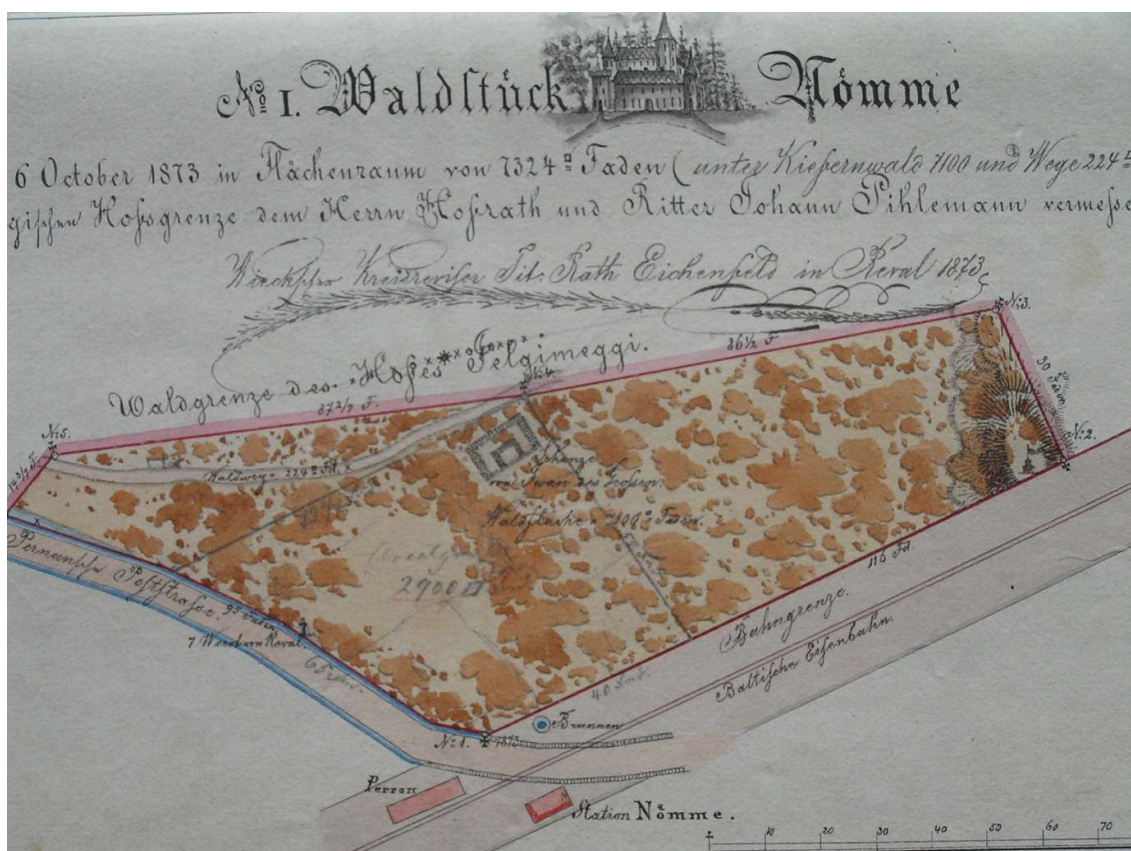 No I. Waldstück Nömme
6 October 1873 in Flächenraum von 7324 □ Faden (unter Kiefernwald 7100 und Wege 224 □
gischen Hofsgrenze dem Herrn Hofrath und Ritter Johann Pihlemann vermesse
Wieckscher Kreisrevisor Tit: Rath Eichenfeld in Reval 1873
No: 3.
36 1/2 F.
Waldgrenze des Hofes Jelgimeggi.
No 4.
37 2/7 F.
30 Faden
No: 5.
No: 2.
14 3/7 F.
Waldweg = 224 □ Fd.
Schanze
von Iwan des Grossen.
Waldfläche = 7100 □ Faden.
2900 □
116 Fd.
Pernausche Poststrasse.
95 Faden
7 Werst von Reval.
Bahngrenze.
Baltische Eisenbahn.
40 Fad.
Brunnen
No: 1. 1873
Perron
Station Nömme.
10 20 30 40 50 60 70